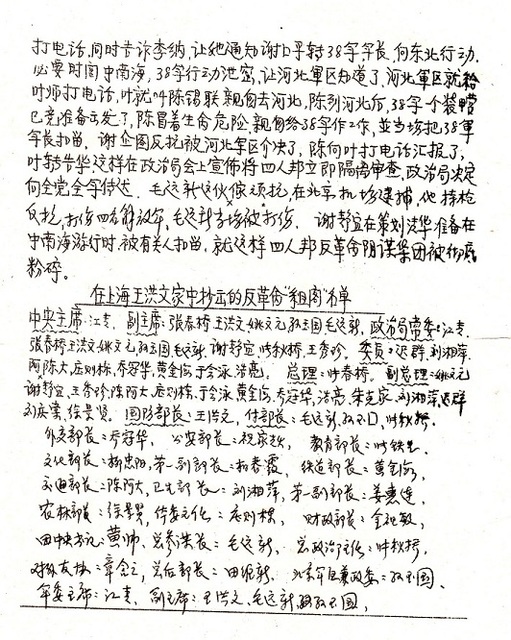 打电话,同时告诉李纳,让她通知谢上平转38军军长,向东北行动,
必要时围中南海,38军行动泄密,让河北军区知道了,河北军区就给
叶帅打电话,叶就叫陈锡联亲自去河北,陈到河北后,38军一个装甲营
已经准备出发了,陈冒着生命危险,亲自给38军作工作,並当场把38军
军长扣留。谢企图反抗被河北军区个决了,陈向叶打电话汇报了,
叶转告华,这样在政治局会上宣佈将四人邦立即隔离审查,政治局决定
向全党全军传达。毛远新这伙很顽抗,在北京机场逮捕,他持枪
反抗,打伤四名解放军,毛远新当场被打伤。谢静宜在策划清华准备在
中南海游行时,被有关人扣留,就这样四人邦反革命阴谋集团被彻底
粉碎。
在上海王洪文家中抄出的反革命"组阁"名单
中央主席:江青,副主席:张春桥王洪文姚文元孙玉国毛远新,政治局常委:江青,
张春桥王洪文姚文元孙玉国毛远新,谢静宜叶秋桥,王秀珍。委员:迟群,刘湘萍,
阿陈大,庄则栋,乔冠华,黄金海,于会泳,浩亮。总理:张春桥。副总理:姚文元
谢静宜,王秀珍,陈阿大,庄则栋,于会泳,黄金海,乔冠华,浩亮,朱克家,刘湘萍,迟群
刘庆棠,徐景贤。国防部长:王洪文,付部长:毛远新,孙玉国,
外交部长:乔冠华,公安部长:祝家耀,教育部长:
文化部长:,第一副部长:春霞,铁道部长:黄金海,
交通部长:陈阿大,卫生部长:刘湘萍,第一副部长:姜惠莲,
农林部长:徐景贤,体委主任:庄则栋,财政部长:金祖敏,
团中央书记:黄帅,总参谋长:毛远新,总政治主任:叶秋桥,
对外友协:章含之,总后部长:田维新,北京军区兼政委:孙玉国,
军委主席:江青,副主席:王洪文,毛远新,孙玉国,